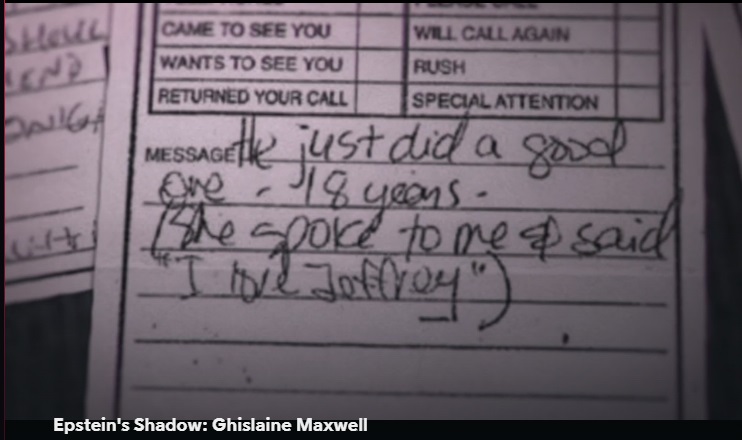 CAME TO SEE YOU
WILL CALL AGAIN
WANTS TO SEE YOU
RUSH
RETURNED YOUR CALL
SPECIAL ATTENTION
MESSAGE He just did a good
one - 18 years -
(She spoke to me & said
"I love Jeffrey")
Epstein's Shadow: Ghislaine Maxwell